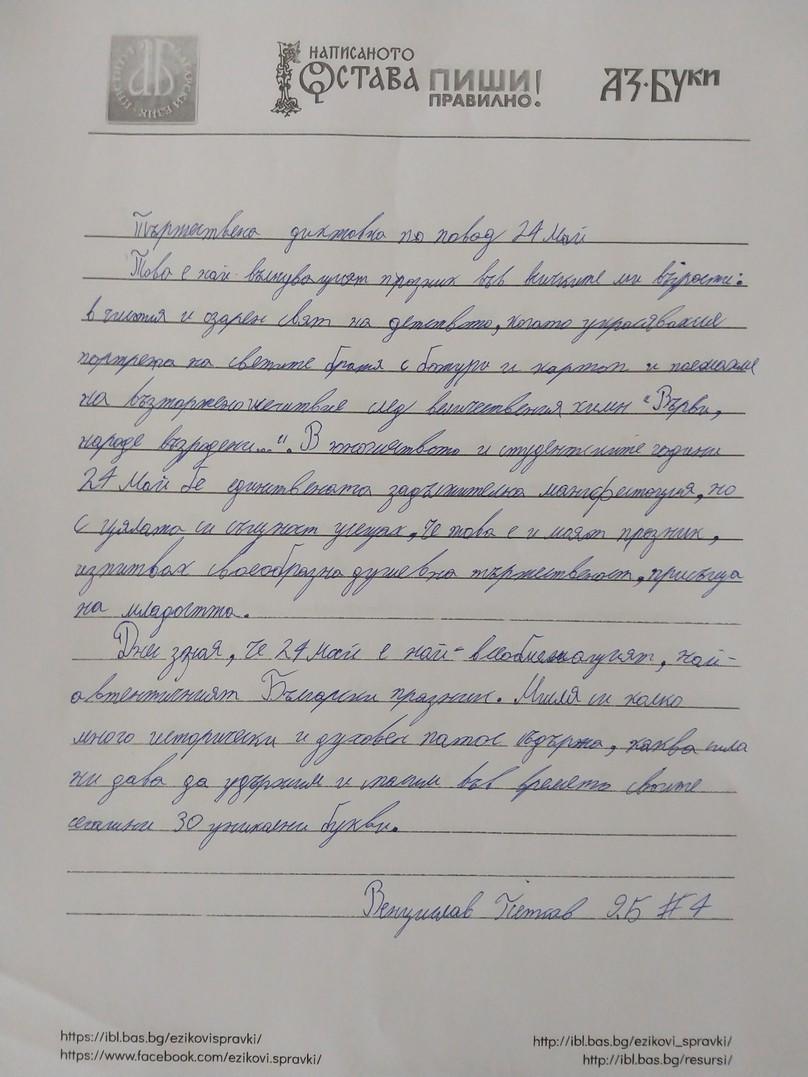 ИНСТИТУТ БЪЛГАРСКИ ЕЗИК
НАПИСАНОТО
ОСТАВА ПИШИ!
ПРАВИЛНО.
АЗ·БУКИ
Тържествена диктовка по повод 24 Май
Това е най-вълнуващият празник във всичките ми възрасти:
в чистия и озарен свят на детството, когато украсявахме
портрета на светите братя с божури и картон и поемахме
на възторжено шествие след величествения химн "Върви,
народе възродени...". В юношеството и студентските години
24 Май бе единствената задължителна манифестация, но
с цялата си същност усещах, че това е и моят празник,
изпитвах своеобразна душевна тържественост, присъща
на младостта.
Днес зная, че 24 май е най-всеобемащият, най-
автентичният Български празник. Мисля си колко
много исторически и духовен патос съдържа, каква сила
ни дава да удържим и носим във времето своите
сегашни 30 уникални букви.
Венцислав Петков 9Б #4
https://ibl.bas.bg/ezikovispravki/
https://www.facebook.com/ezikovi.spravki/
http://ibl.bas.bg/ezikovi_spravki/
http://ibl.bas.bg/resursi/